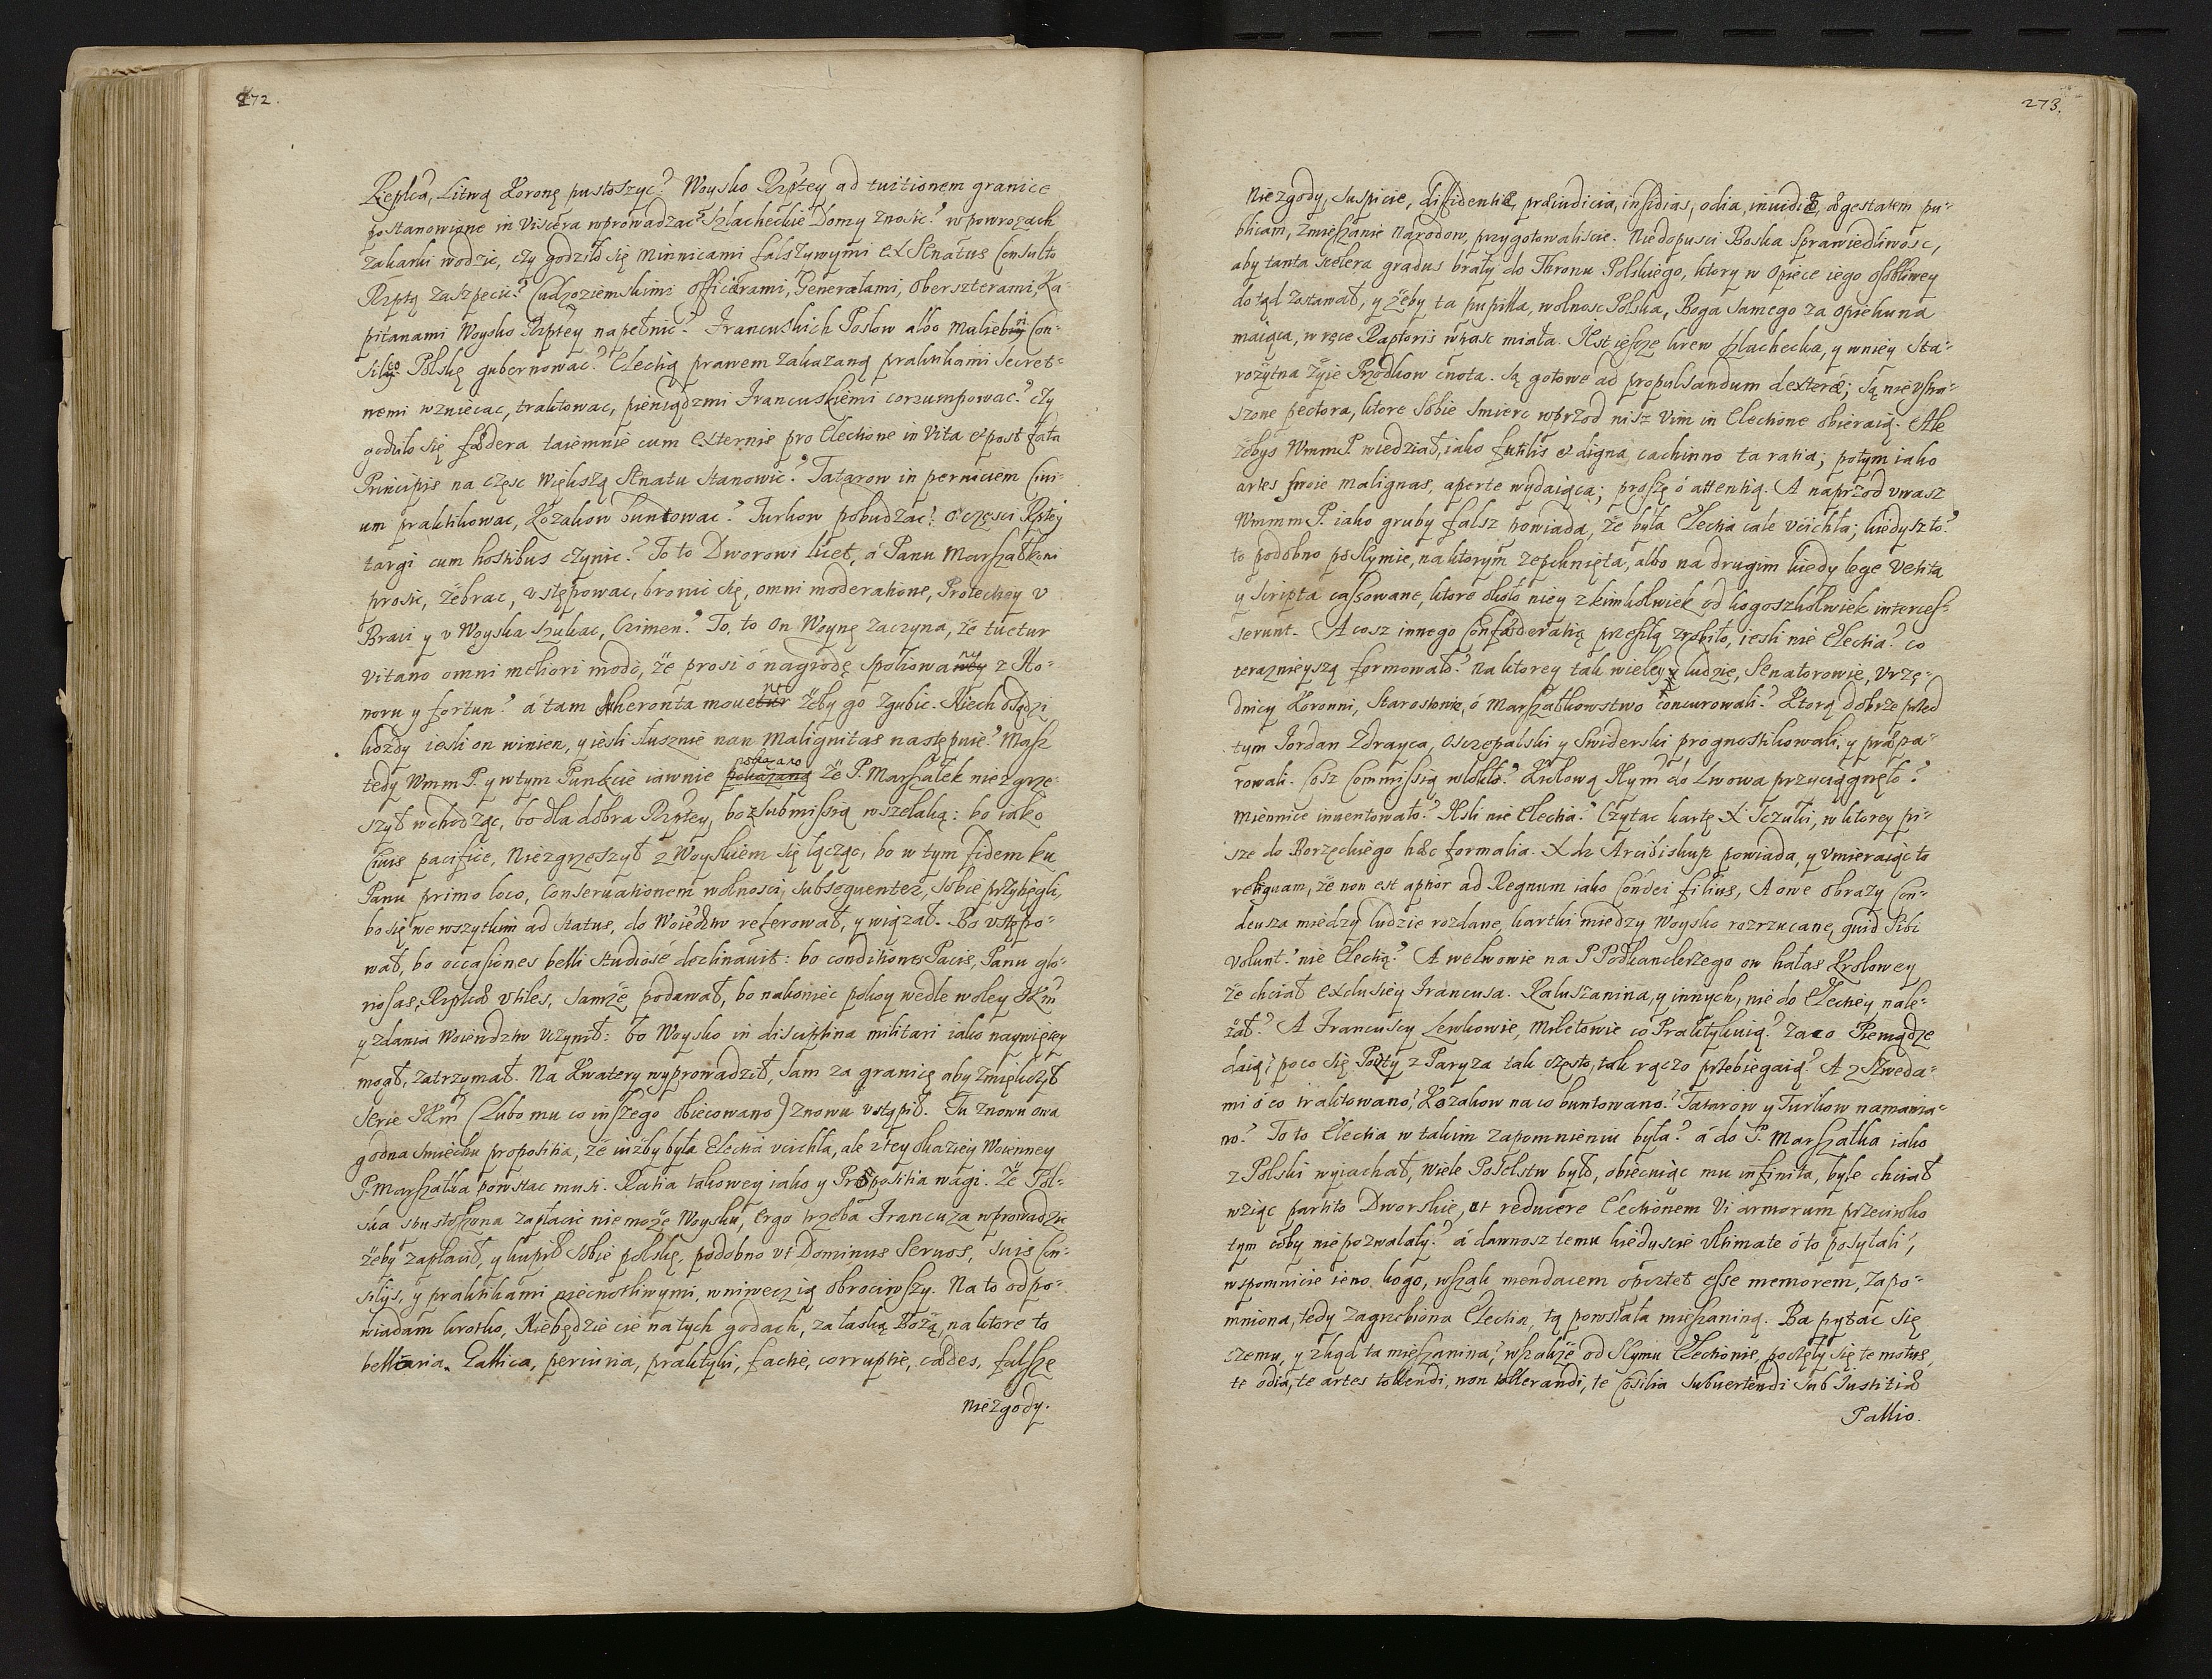 272.
Rzeplcą, Litwą Koronę pustoszyc? Woysko Rzptey ad tuitionem granice
postanowione in viscera wprowadzac? Szlacheckie Domy znosic? w powrozach
za karki wodzic, czy godziło się Minnicami falszywymi ex Senatus Consulto
Rzptą zaszpecic? Cudzoziemskimi Officerami, Generałami, Oberszterami, Ka-
pitanami Woysko Rzptey napełnic? Francuskich Posłow albo Muliebri Con-
silio Polskę gubernowac? Elechią prawem zakazaną praktikami secret-
nemi wzniecac, traktowac, pieniądzmi Francuskiemi corrumpowac? czy
godziło się fædera taiemnie cum Externis pro Elechione in Vita & post fata
Principis na częsc większą Senatu stanowic? Tatarow in perniciem Ciui-
um praktikowac, Kozakow buntowac? Turkow pobudzac? o częsci Rptey
targi cum hostibus czynic? To to Dworowi licet, á Panu Marszałkowi
prosic, żebrac, vstępowac, bronic się, omni moderatione, Protechiey v
Braci y v Woyska szukac, Crimen? To, to On Woynę zaczyna, że tuetur
vitano omni meliori modo, że prosi ó nagrodę spoliowany z Ho-
noru y fortun? á tam Acheronta mouent żeby go zgubic. Niech osądzi
kozdy iesli on winien, y iesli słusznie nan Malignitas następuie? Masz
tedy Wmm P. y w tym Punkcie iawnie pokazano że P. Marszałek nie zgrze-
szył wchodząc, bo dla dobra Rzptey, bo z submissią wszelaką: bo iako
Ciuis pacifice, Niezgrzeszył z Woyskiem się łącząc, bo w tym fidem ku
Panu primo loco, Conseruationem wolnosci, subsequenter, sobie przysięgli,
bo się we wszytkim ad status, do Woiewdztw referował, y wiązał. Bo vstępo-
wał, bo occasiones belli studiosé declinauit: bo conditiones Pacis, Panu glo-
riosas, Rzplcæ vtiles, samże podawał, bo nakoniec pokoy wedle woley JKmˢᶜⁱ
y zdania Woiewdztw vczynił: bo Woysko in disciplina militari iako naywięcey
mogł, zatrzymał. Na Kwatery wyprowadził, sam za granicę aby zmiękczył
serce JKmˢᶜⁱ (lubo mu co inszego obiecowano) znowu vstąpił. Tu znowu owa
godna smiechu propositia, że iużby była Elechia vcichła, ale z tey okaziey Woienney
P. Marszałka powstac musi. Ratia takowey iako y Propositia wagi. Że Pol-
ska spustoszona zapłacic nie może Woysku, ergo trzeba Francuza wprowadzic
żeby zapłacił, y kupił sobie polskę, podobno vt Dominus Seruos, suis Con-
silijs, y praktikami niecnotliwymi, wniwecz ią obrociwszy. Na to odpo-
wiadam krotko, Niebędziecie na tych godach, za łaską Bożą, na ktore to
bellaria Gallica, periuria, praktyki, factie, corruptie, cædes, falsze
Niezgody.
273.
Niezgody, suspicie, diffidentie, præiudicia, insidias, odia, inuidiæ, ægestatem pu-
blicam, zmieszanie Narodow, przygotowaliscie. Niedopusci Boska Sprawiedliwosc,
aby tanta scelera gradus brały do Thronu Polskiego, ktory w opiece iego osobliwey
dotąd zostawał, y żeby ta pupilla, wolnosc Polska, Boga samego za opiekuna
maiąca, w ręce Raptoris wpasc miała. Jest ieszcze krew szlachecka, y w niey Sta-
rożytna żyie Przodkow cnota. Są gotowe ad propulsandum dexteræ; Są nie vstra-
szone pectora, ktore sobie smierc wprzod nisz vim in Elechione obieraią. Ale
żebys Wmm P. wiedział, iako futilis & digna cachinno ta ratia; potym iako
artes swoie malignas, aperte wydaiąca; proszę ó attentią. A naprzod vwasz
Wmmm P. iako gruby falsz powiada, że była Elechia cale vcichła; kiedysz to?
to podobno po Seymie, na ktorym zepchnięta, albo na drugim kiedy lege vetita
y scripta cassowane, ktore około niey z kimkolwiek od kogoszkolwiek intercess-
serunt. A cosz innego Confæderatią przeszłą zrobiło, iesli nie Elechia? co
teraznieyszą formowało? na ktorey tak wielcy ludzie, Senatorowie, Vrzę-
dnicy Koronni, Starostowie, ó Marszałkowstwo concurowali? Ktorą dobrze przed
tym Jordan Zdrayca, Oszczepalski y Swiderski prognostikowali, y præpa-
rowali. Cosz Commissią wlokło? Krolową Jeym do Lwowa przyciągnęło?
Miennice inuentowało? Jesli nie Elechia? Czytac kartę X Sczuki, w ktorey pi-
sze do Borzęckiego hæc formalia. X dz Arcibiskup powiada, y vmieraiąc to
reliquam, że non est aptior ad Regnum iako Condei filius, A owe obrazy Con-
deusza między ludzie rozdane, kartki miedzy Woysko rozrzucane, quid Sibi
volunt? nie Elechią? A we Lwowie na P Podkanclerzego ow hałas Krolowey
że chciał exclusiey Francusa. Rakuszanina, y innych, nie do Elechiey nale-
żał? A Francuscy Lewkowie, Miletowie co Praktykuią? Za co Pieniądze
daią? po co się Poczty z Paryza tak często, tak rączo przebiegaią? A z Szweda-
mi ó co traktowano? Kozakow na co buntowano? Tatarow y Turkow namawia-
no? To to Elechia w takim zapomnieniu była? á do P. Marszałka iako
z Polski wyiachał, wiele Poselstw było, obiecuiąc mu infinita, byle chciał
wziąc partito Dworskie, et reducere Elechionem Vi armorum przeciwko
tym coby nie pozwalały? á dawnosz temu kiedyscie vltimate ó to posyłali,
wspomnicie ieno kogo, wszak mendacem oportet esse memorem, Zapo-
mniona, tedy zagrzebiona Elechia, tą powstała mieszaniną. Ba pytac się
czemu, y zkąd ta mieszanina? wszakże od Seymu Elechionis, poczęły się te motus,
te odia, te artes tollendi, non tollerandi, te Cosilia subuertendi sub Iustitiæ
Pallio.